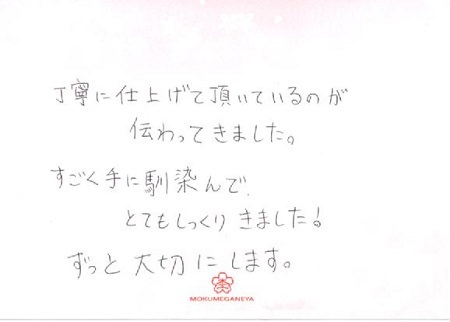 丁寧に仕上げて頂いているのが
伝わってきました。
すごく手に馴染んで、
とてもしっくりきました!
ずっと大切にします。
MOKUMEGANEYA